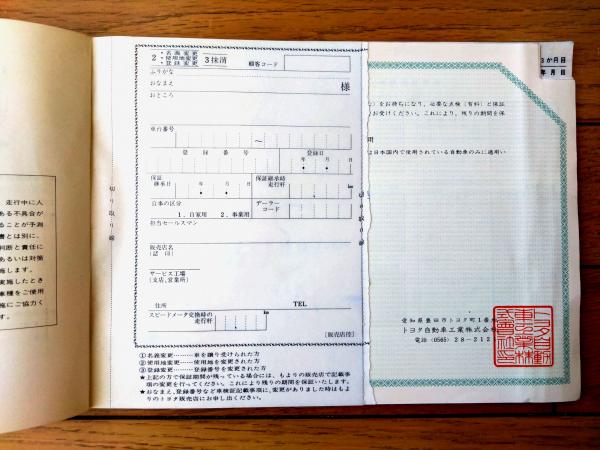 走行中に人
ある不具合が
ることが予測
書とは別に、
判断と責任に
あるいは対策
施します。
実施したとき
車種をご使用
施にご協力く
す。
切り取り線
2
・名義変更
・使用地変更
・登録変更
3抹消
顧客コード
ふりがな
おなまえ
様
おところ
車台番号
～
登録番号
登録日
年 月 日
保証
継承日
年 月 日
保証継承時
走行粁
km
自車の区分
1.自家用 2.事業用
デーラー
コード
担当セールスマン
販売店名
(認印)
サービス工場
(支店、営業所)
住所
TEL
スピードメータ交換時の
走行粁
km
[販売店控]
切り取り線
①名義変更………車を譲り受けられた方
②使用地変更……使用地を変更された方
③登録変更………登録番号を変更された方
★上記の方で保証期間が残っている場合には、もよりの販売店で記載事
項の変更を行ってください。これにより残りの期間を保証いたします。
★おなまえ、登録番号など車検証記載事項に、変更がありました時はもよ
りのトヨタ販売店にお申し出ください。
か月目
年 月 日
をお持ちになり、必要な点検(有料)と保証
お受けください。これにより、残りの期間を保
用
は日本国内で使用されている自動車のみに適用い
愛知県豊田市トヨタ町1番
トヨタ自動車工業株式会
電話(0565)28-212
トヨタ自動
車工業株
式會社